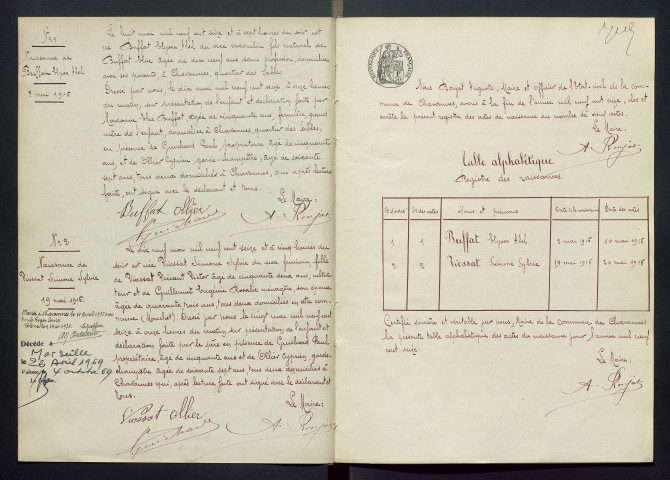 N° 1
Naissance de
Buffat Elysée Abel
8 mai 1916
Le huit mai mil neuf cent seize et à sept heures du soir est
né Buffat Elysée Abel du sexe masculin, fils naturel de
Buffat Elise âgée de dix neuf ans sans profession, domiciliée
avec ses parents, à Chavannes, quartier des Sables.
Dressé par nous, le dix mai mil neuf cent seize, à onze heures
du matin, sur présentation de l'enfant et déclaration faite par
Madame Buffat, âgée de cinquante ans, grand
mère de l'enfant, domiciliée à Chavannes, quartier des Sables,
en présence de Guichard Paul, propriétaire âgé de cinquante
ans, et de Ollier Cyprien, garde-champêtre, âgé de soixante
sept ans tous deux domiciliés à Chavannes, qui après lecture
faite, ont signé avec le déclarant et nous.
Le Maire:
Buffat Ollier
Guichard A. Roujat
N° 2
Naissance de
Viossat Simone Sylvie
19 mai 1916.
Décédé à
Marseille
le 26 Avril 1969
4 octobre 69
Le dix neuf mai mil neuf cent seize et à cinq heures du
soir est née Viossat Simone Sylvie du sexe féminin, fille
de Viossat Vincent Victor âgé de cinquante deux ans, cultiva
teur et de Guillermet Eugénie Rosalie son épouse
âgée de quarante trois ans, tous deux domiciliés en cette com
mune. Dressé par nous le vingt mai mil neuf cent
seize à onze heures du matin, sur présentation de l'enfant et
déclaration faite par le père en présence de Guichard Paul
propriétaire, âgé de cinquante ans et de Ollier Cyprien, garde-
champêtre âgé de soixante sept ans tous deux domiciliés à
Chavannes qui, après lecture faite ont signé avec le déclarant et
nous.
Le Maire:
Viossat Ollier
Guichard A. Roujat
REPUBLIQUE FRANÇAISE
Nous Roujat Auguste, Maire et officier de l'état civil de la com
mune de Chavannes, avons à la fin de l'année mil neuf cent seize, clos et
arrêté le présent registre des actes de naissance au nombre de deux actes.
Le Maire:
A. Roujat
Table alphabétique
Registre des naissances.
N° d'ordre N° des actes Noms et prénoms Date de la naissance Date des actes
1 1 Buffat Elysée Abel 8 mai 1916 10 mai 1916
2 2 Viossat Simone Sylvie 19 mai 1916 20 mai 1916
Certifiée sincère et véritable par nous, Maire de la commune, de Chavannes
la présente table alphabétique des actes de naissance pour l'année mil neuf
cent seize
Le Maire:
A. Roujat